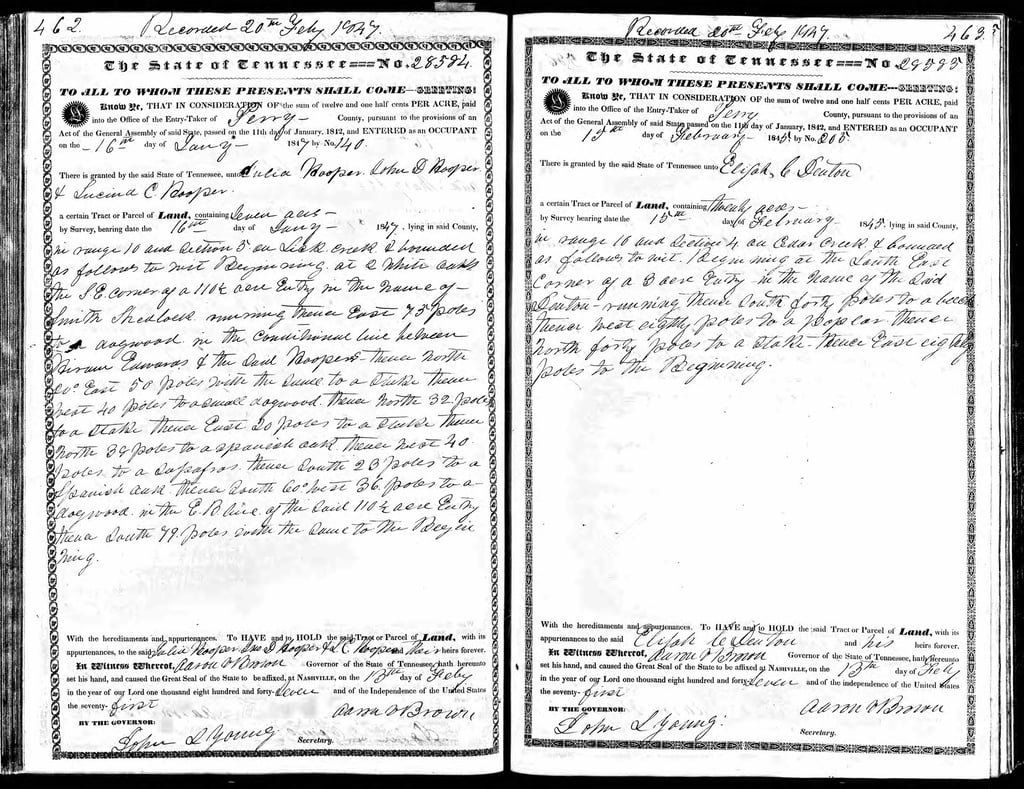 462. Recorded 20th Feby 1847.
The State of Tennessee===No. 28584.
TO ALL TO WHOM THESE PRESENTS SHALL COME—GREETING:
Know Ye, THAT IN CONSIDERATION OF the sum of twelve and one half cents PER ACRE, paid
into the Office of the Entry-Taker of Perry County, pursuant to the provisions of an
Act of the General Assembly of said State, passed on the 11th day of January, 1842, and ENTERED as an OCCUPANT
on the 16th day of Jany 1847 by No. 140.
There is granted by the said State of Tennessee, unto Julia Hooper John D Hooper
& Lucind C. Hooper.
a certain Tract or Parcel of Land, containing Seven acres
by Survey, bearing date the 16th day of Jany 1847, lying in said County,
in range 10 and Section 5 on Lick creek & bounded
as follows to wit Beginning at a White oak
the S.E. corner of a 110½ acre Entry in the name of
Smith running thence East 75 poles
to a dogwood in the Conditional line between
Hiram Edwards & the said Hoopers thence North
20° East 50 poles with the same to a Stake thence
West 40 poles to a small dogwood thence North 32. poles
to a Stake thence East 20 poles to a Stake thence
North 38 poles to a Spanish oak thence West 40
poles to a thence South 23 poles to a
Spanish oak thence South 60° West 36 poles to a
dogwood in the E.B line of the said 110½ acre Entry
thence South 79 poles with the same to the Begin
ning.
With the hereditaments and appurtenances. To HAVE and to HOLD the said Tract or Parcel of Land, with its
appurtenances, to the said Julia Hooper Jno D Hooper & L C Hooper & their heirs forever.
In Witness Whereof, Aaron V Brown Governor of the State of Tennessee, hath hereunto
set his hand, and caused the Great Seal of the State to be affixed at NASHVILLE, on the 13th day of Feby
in the year of our Lord one thousand eight hundred and forty-Seven and of the Independence of the United States
the seventy-first
Aaron V Brown
BY THE GOVERNOR:
John S Young
Secretary.
Recorded 20th Feby 1847. 463.
The State of Tennessee===No 28585
TO ALL TO WHOM THESE PRESENTS SHALL COME---GREETING:
Know Ye, THAT IN CONSIDERATION OF the sum of twelve and one half cents PER ACRE, paid
into the Office of the Entry-Taker of Perry County, pursuant to the provisions of an
Act of the General Assembly of said State, passed on the 11th day of January, 1842, and ENTERED as an OCCUPANT
on the 15th day of February 1845 by No. 205.
There is granted by the said State of Tennessee unto Elijah C Denton
a certain Tract or Parcel of Land, containing twenty acres
by Survey bearing date the 15th day of February 1845. lying in said County,
in range 10 and Section 4 on Cedar Creek & bounded
as follows to wit. Beginning at the South East
Corner of a 3 acre Entry in the name of the said
Denton running thence South forty poles to a beech
thence West eighty poles to a poplar thence
North forty poles to a Stake thence East eighty
poles to the Beginning.
With the hereditaments and appurtenances. To HAVE and to HOLD the said Tract or Parcel of Land, with its
appurtenances to the said Elijah C Denton and his heirs forever.
In Witness Whereof, Aaron V Brown Governor of the State of Tennessee, hath hereunto
set his hand, and caused the Great Seal of the State to be affixed at NASHVILLE, on the 13th day of Feby
in the year of our Lord one thousand eight hundred and forty-Seven and of the independence of the United States
the seventy-first
Aaron V Brown
BY THE GOVERNOR:
John S Young.
Secretary.